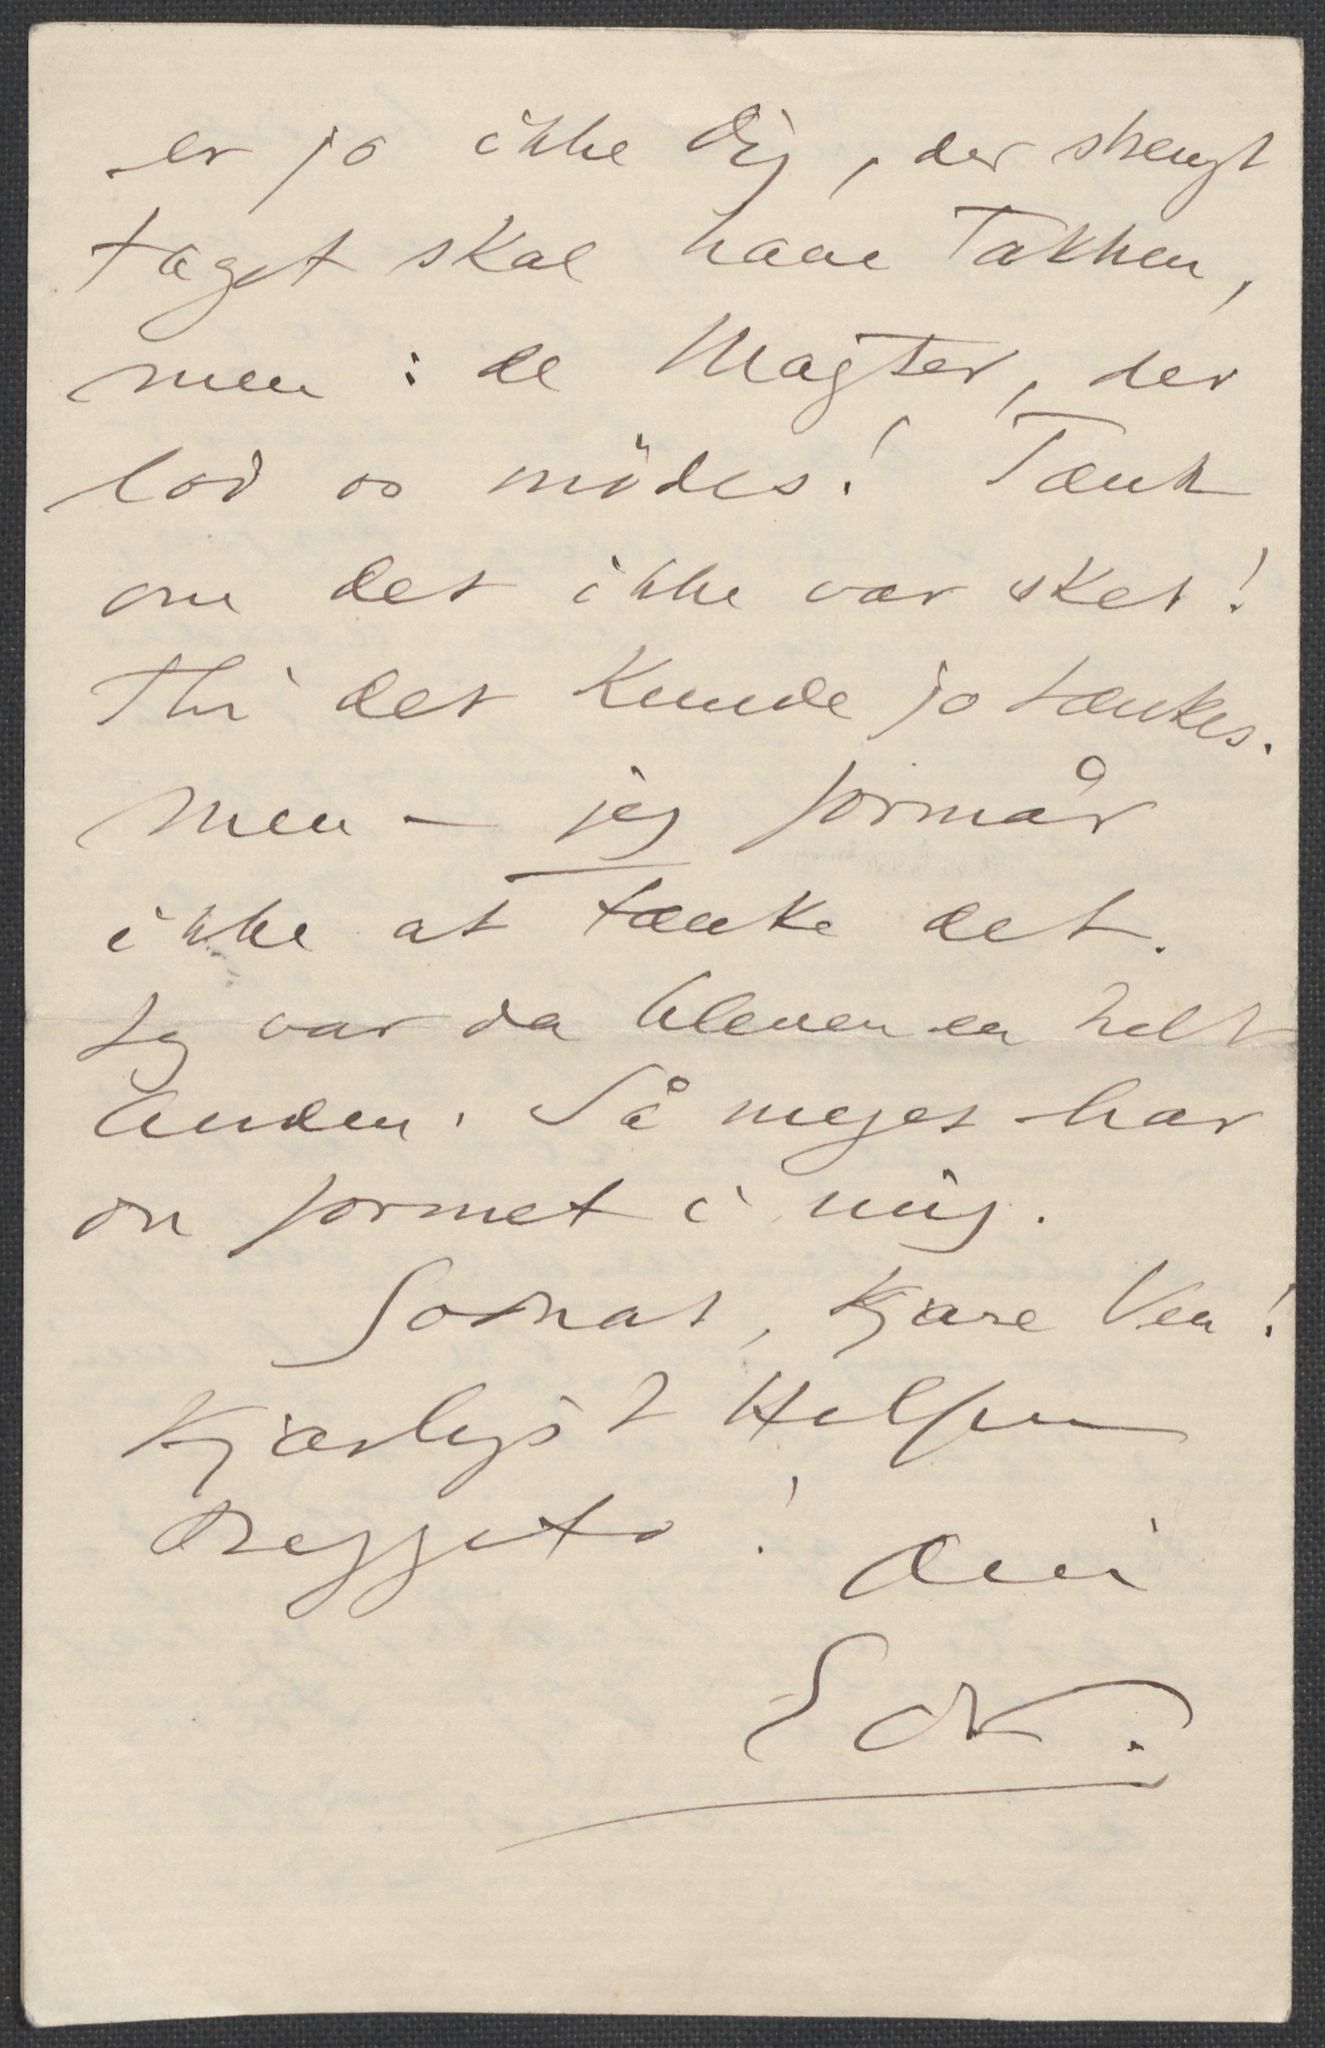 er jo ikke Dig, der strengt
taget skal have Takken,
men: de Magter, der
lod os mödes! Tænk
om det ikke var sket!
Thi det kunde jo tænkes.
Men – jeg formår
ikke at tænke det.
Jeg var da bleven en helt
Anden. Så meget har
Du formet i mig.
Godnat, kjære Ven!
Kjærligst Hilsen
Begge to! Din
EdvG.